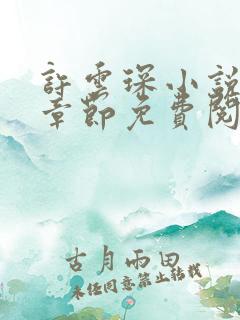 許雲琛小說
章節免費閱
古月雨田
未经同意禁止转载